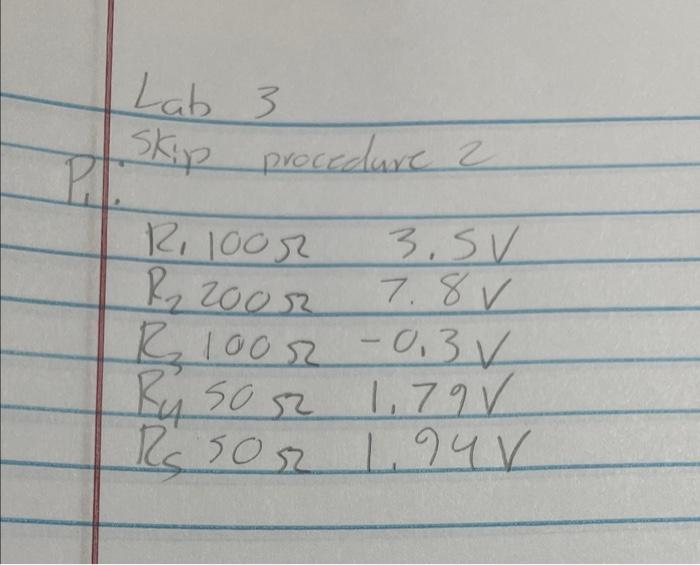 Lab 3
Skip procedure 2
P1:
R1 100Ω 3.5V
R2 200Ω 7.8V
R3 100Ω -0.3V
R4 50Ω 1.79V
R5 50Ω 1.94V